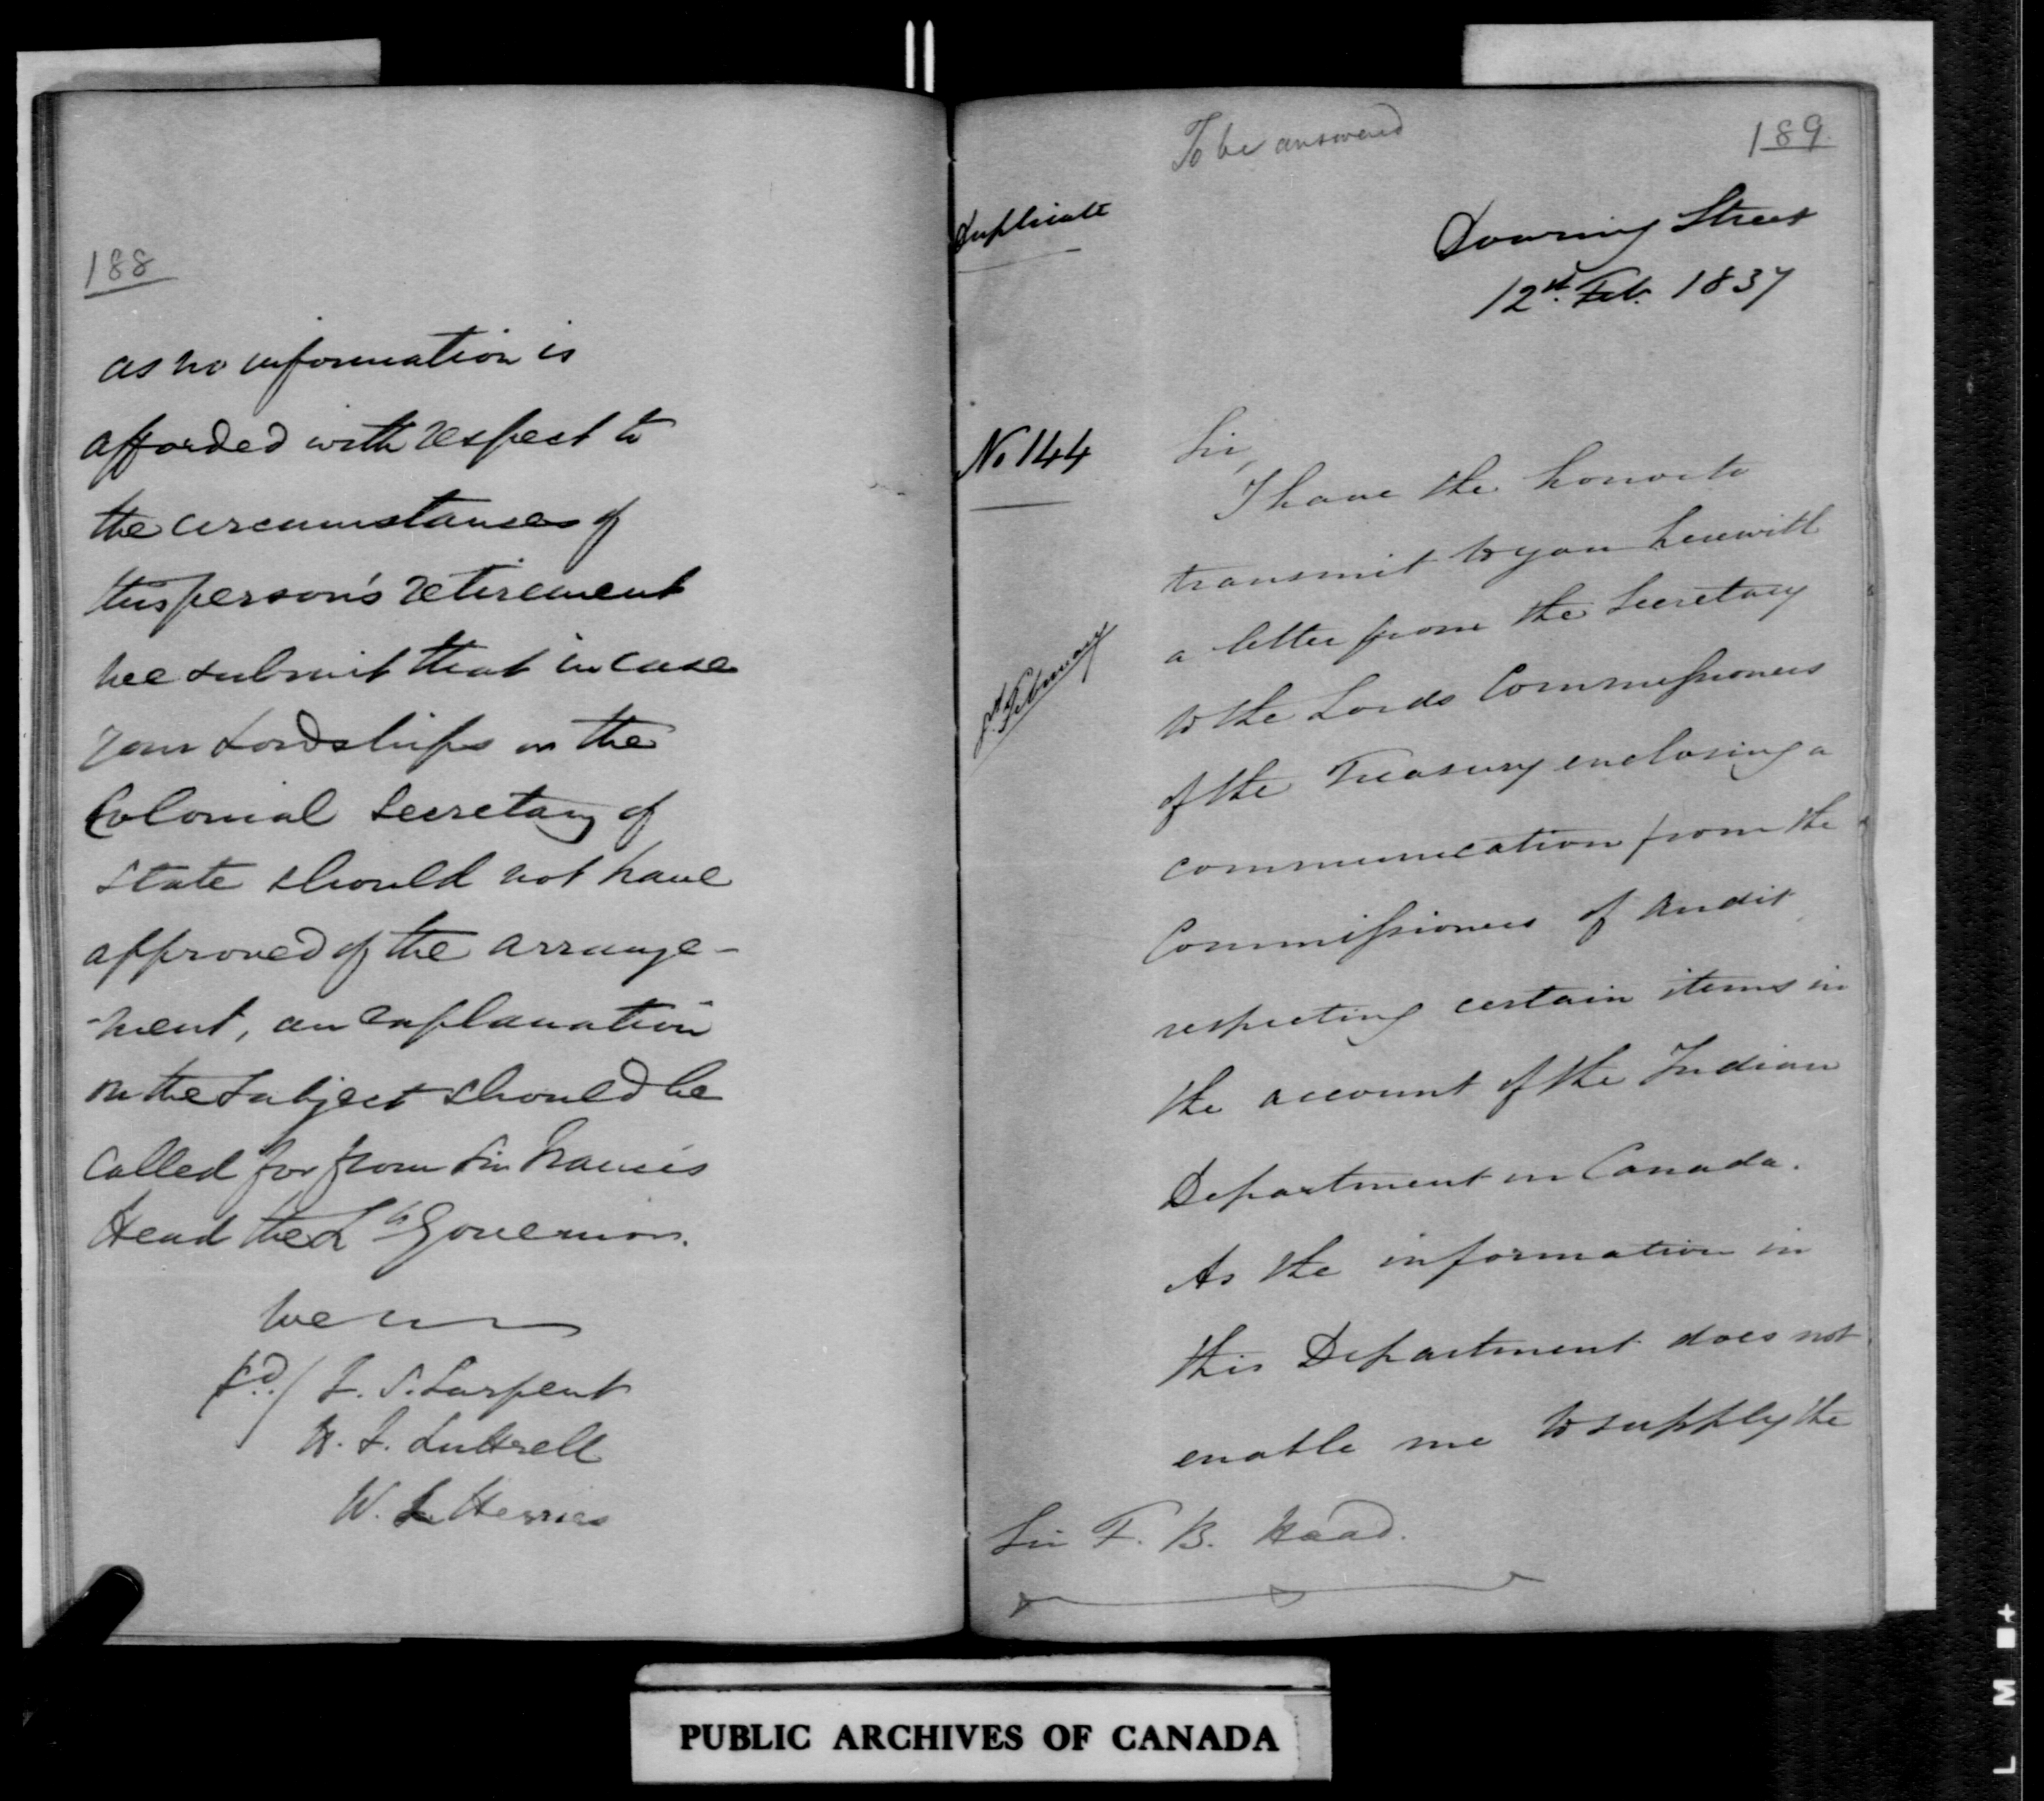 188
as no information is
afforded with respect to
the circumstances of
this person's retirement
we submit that in case
your Lordships or the
Colonial Secretary of
State should not have
approved of the arrange-
-ment, an explanation
on the subject should be
called for from Sir Francis
Head the Lt Governor.
We
sd/ F. S. Larpent
H. F. Luttrell
W. L. Herries
To be answered
189.
Duplicate
Downing Street
12th Feb. 1837
No 144
Sir,
I have the honor to
transmit to you herewith
a letter from the Secretary
February
to the Lords Commissioners
of the Treasury enclosing a
communication from the
Commissioners of Audit
respecting certain items in
the account of the Indian
Department in Canada.
As the information in
this Department does not
enable me to supply the
Sir F. B. Head.
PUBLIC ARCHIVES OF CANADA
L M